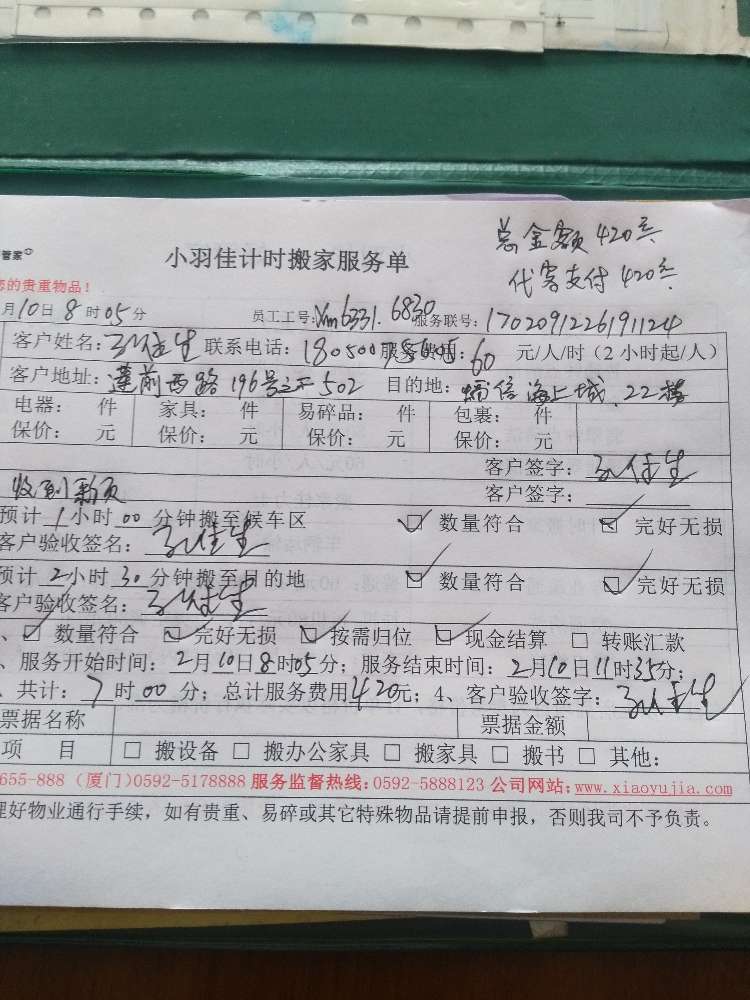 总金额420元
代客支付420元
管家
小羽佳计时搬家服务单
您的贵重物品！
月10日8时05分 员工工号：Xm6331.6830 服务联号：1702091226191124
客户姓名： 联系电话：180500 服务费用：60元/人/时（2小时起/人）
客户地址：莲前西路196号之 502 目的地：信海上城.22楼
电器： 件 家具： 件 易碎品： 件 包裹： 件
保价： 元 保价： 元 保价： 元 保价： 元
客户签字：
收到 客户签字：
预计1小时00分钟搬至候车区 ☑ 数量符合 ☑ 完好无损
客户验收签名：
预计2小时30分钟搬至目的地 ☑ 数量符合 ☑ 完好无损
客户验收签名：
、☑ 数量符合 ☑ 完好无损 ☑ 按需归位 ☑ 现金结算 □ 转账汇款
、服务开始时间：2月10日8时05分；服务结束时间：2月10日11时35分；
、共计：7时00分；总计服务费用420元；4、客户验收签字：
票据名称 票据金额
项 目 □ 搬设备 □ 搬办公家具 □ 搬家具 □ 搬书 □ 其他：
655-888（厦门）0592-5178888 服务监督热线：0592-5888123 公司网站：www.xiaoyujia.com
理好物业通行手续，如有贵重、易碎或其它特殊物品请提前申报，否则我司不予负责。